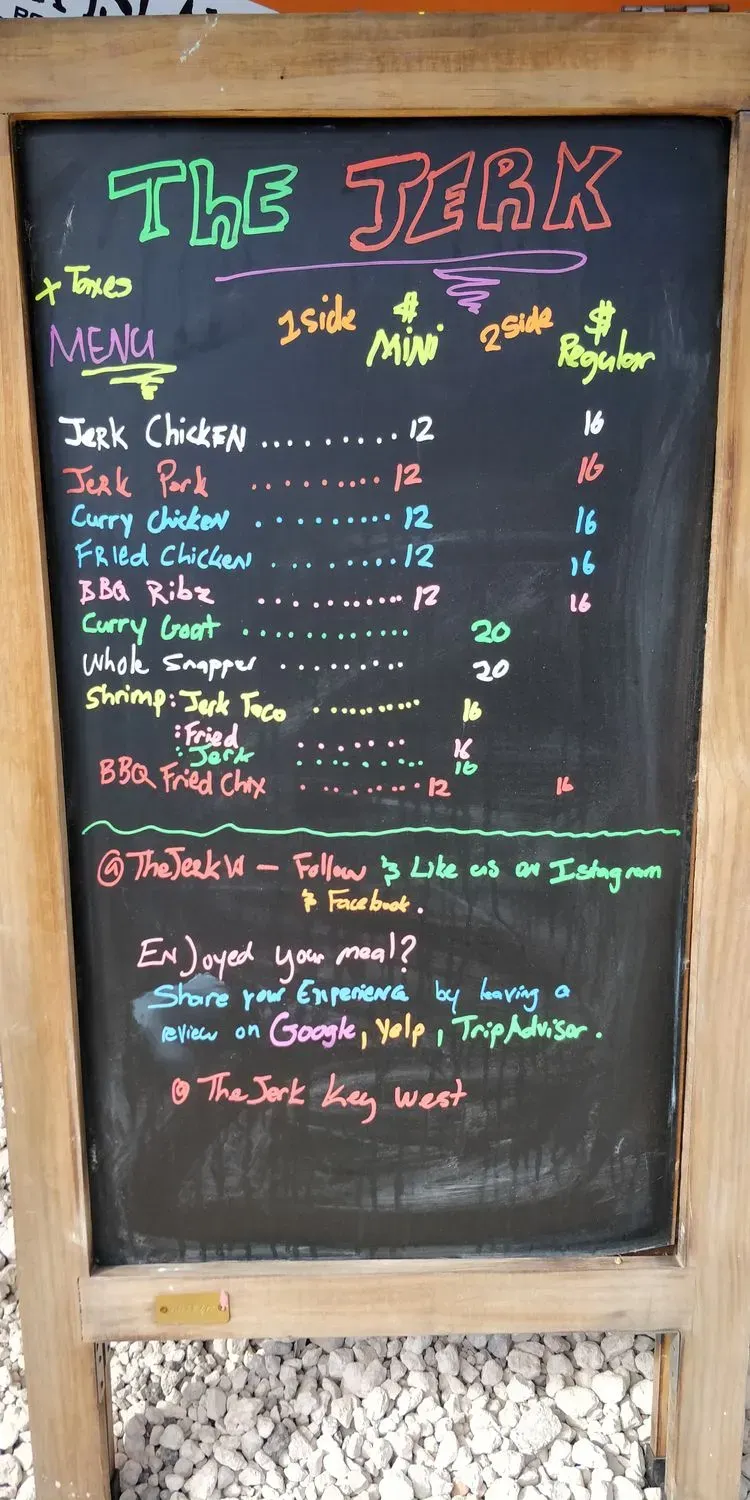 The JERK
+ Taxes
MENU 1 side $ MiNi 2 side $ Regular
Jerk Chicken .......... 12 16
Jerk Pork ......... 12 16
Curry Chicken ......... 12 16
Fried Chicken ......... 12 16
BBQ Ribz ........... 12 16
Curry Goat ............ 20
Whole Snapper ......... 20
Shrimp: Jerk Taco ......... 16
: Fried ...... 16
: Jerk ........ 16
BBQ Fried Chix ......... 12 16
@TheJerk — Follow & Like us on Istagram
& Facebook.
Enjoyed your meal?
Share your Experience by leaving a
review on Google, Yelp, TripAdvisor.
@ The Jerk Key West